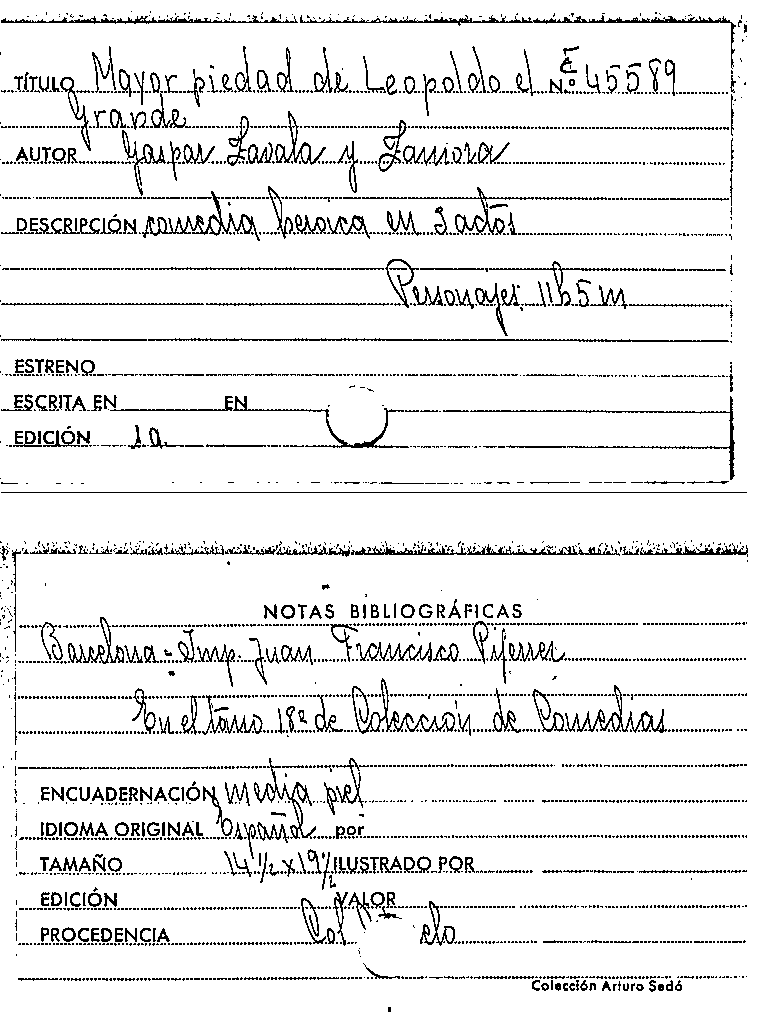 TÍTULO Mayor piedad de Leopoldo el N.º 45589
Grande
AUTOR Gaspar Zavala y Zamora
DESCRIPCIÓN comedia heroica en 3 actos
Personajes: 11 h 5 m
ESTRENO
ESCRITA EN EN
EDICIÓN 1a.
NOTAS BIBLIOGRÁFICAS
Barcelona = Imp. Juan Francisco Piferrer
En el tomo 18º de Colección de Comedias
ENCUADERNACIÓN media piel
IDIOMA ORIGINAL Español por
TAMAÑO 14 1/2 x 19 1/2 ILUSTRADO POR
EDICIÓN VALOR
PROCEDENCIA
Colección Arturo Sedó